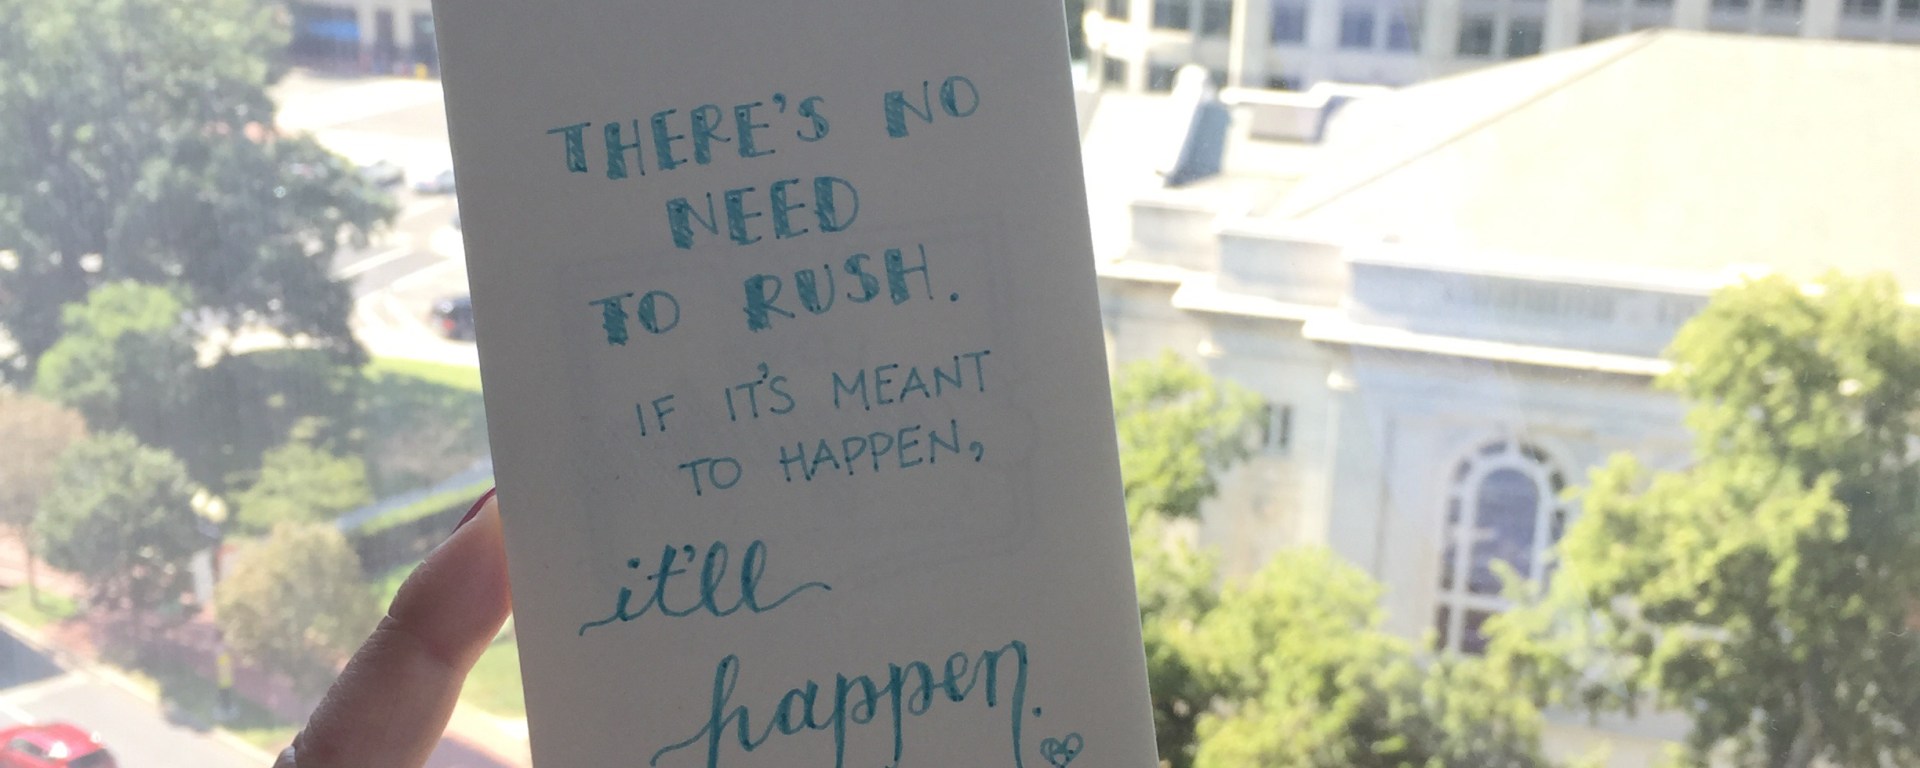 THERE'S NO
NEED
TO RUSH.
IF IT'S MEANT
TO HAPPEN,
it'll
happen.